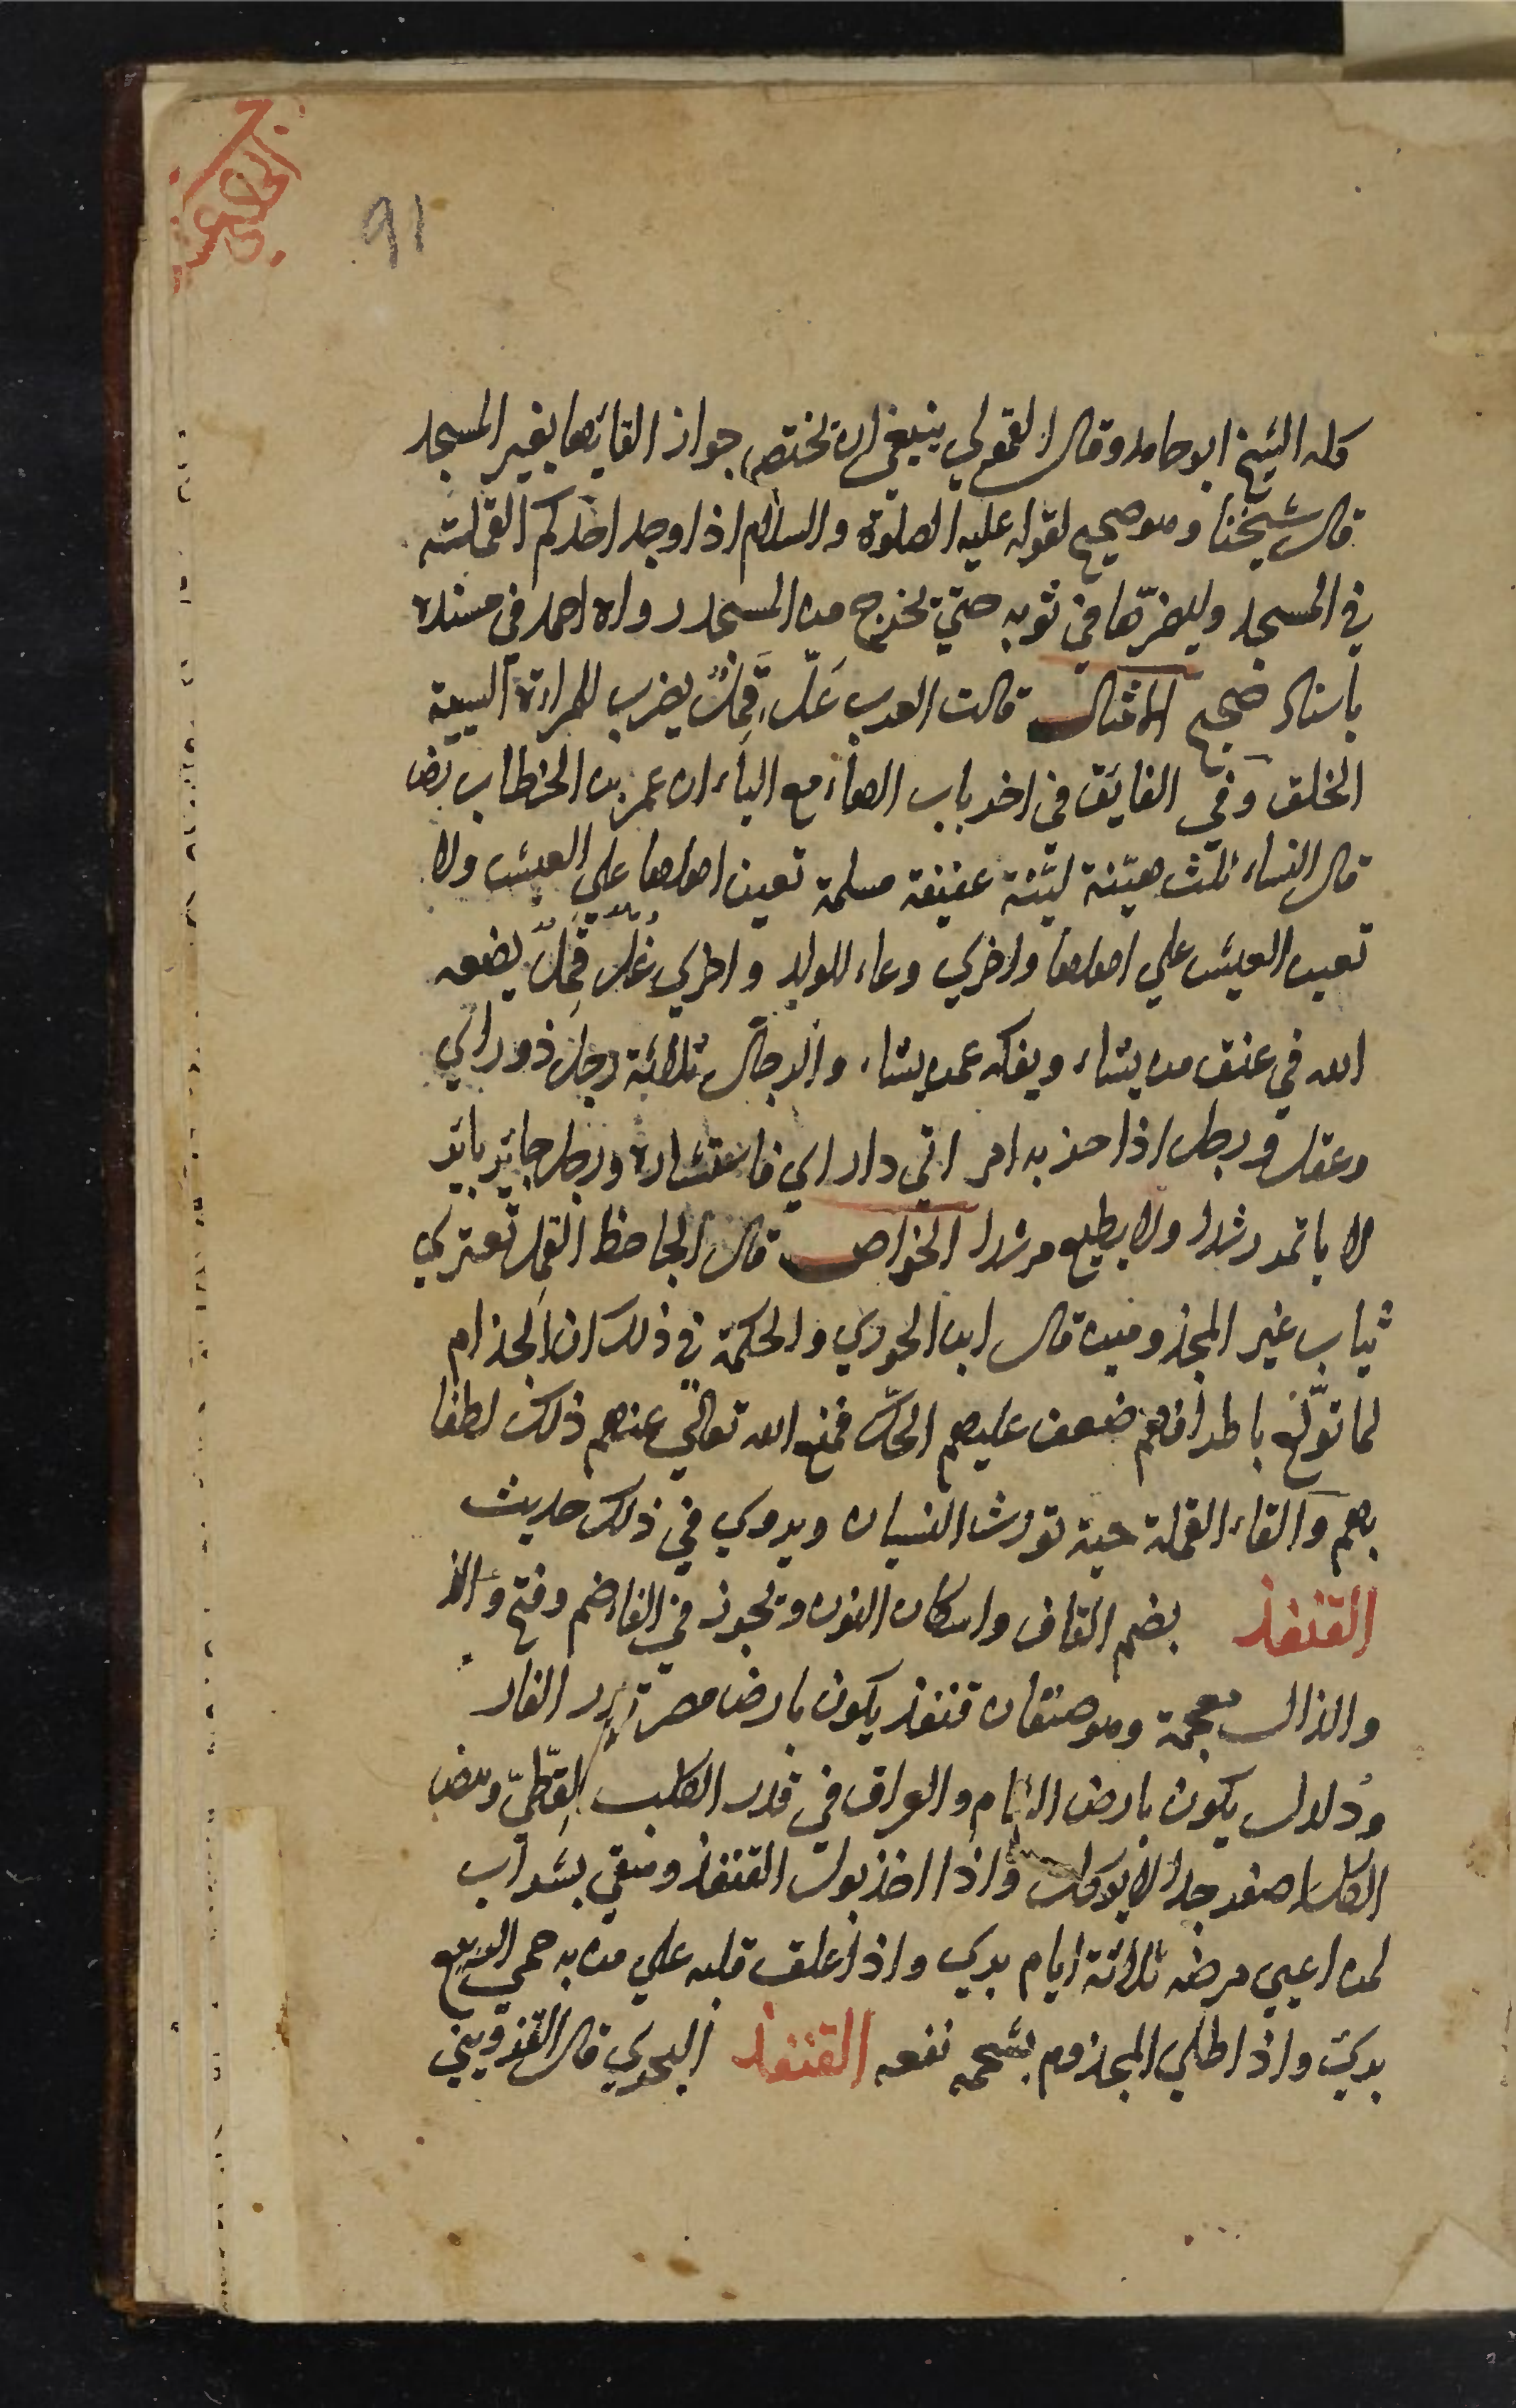 91
كله الشيخ ابو حامد وقال القمولي ينبغي ان يختص جواز القائها بغير المسجد
قال شيخنا وهو صحيح لقوله عليه الصلوة والسلام اذا وجد احدكم القملة
في المسجد وليصرّها في ثوبه حتي يخرج من المسجد رواه احمد في مسنده
باسناد صحيح الامثال قالت العرب غلّ قَمِلٌ يضرب للمراة السيية
الخلق وفي الفايق في اخر باب الهاء مع الياء ان عمر بن الخطاب رض
قال النساء ثلث هيّنة ليّنة عفيفة مسلمة تعين اهلها علي العيش ولا
تعين العيش علي اهلها واخري وعاء للولد واخري غُلّ قَمِلٌ يضعه
الله في عنق من يشاء ويفكه عمن يشاء والرجال ثلاثة رجل ذو راي
وعقل ورجل اذا حزبه امر اتي دار اي فاستشاره ورجل حائر بائر
لا ياتمر رشدا ولا يطيع مرشدا الخواص قال الجاحظ القمل تعتري
ثياب غير المجذومين قال ابن الجوزي والحكمة في ذلك ان الجذام
لما تولّع باطرافهم ضعف عليهم الحكّ فمنع الله تعالي عنهم ذلك لطفا
بهم والقاء القملة حية تورث النسيان ويروي في ذلك حديث
القنفذ بضم القاف واسكان النون ويجوز في الفاء ضم وفتح والذ
والذال معجمة وهو صنفان قنفذ يكون بارض مصر قدر الفار
ودلدل يكون بارض الشام والعراق في قدر الكلب القلطيّ
جدا لا يوكل واذا اخذ بول القنفذ وسقي بشراب
لمن اعيي مرضه ثلاثة ايام بري واذا علق قلبه علي من به حمي الربع
بري واذا طلي المجذوم بشحمه نفعه القنفذ البحري قال القزويني